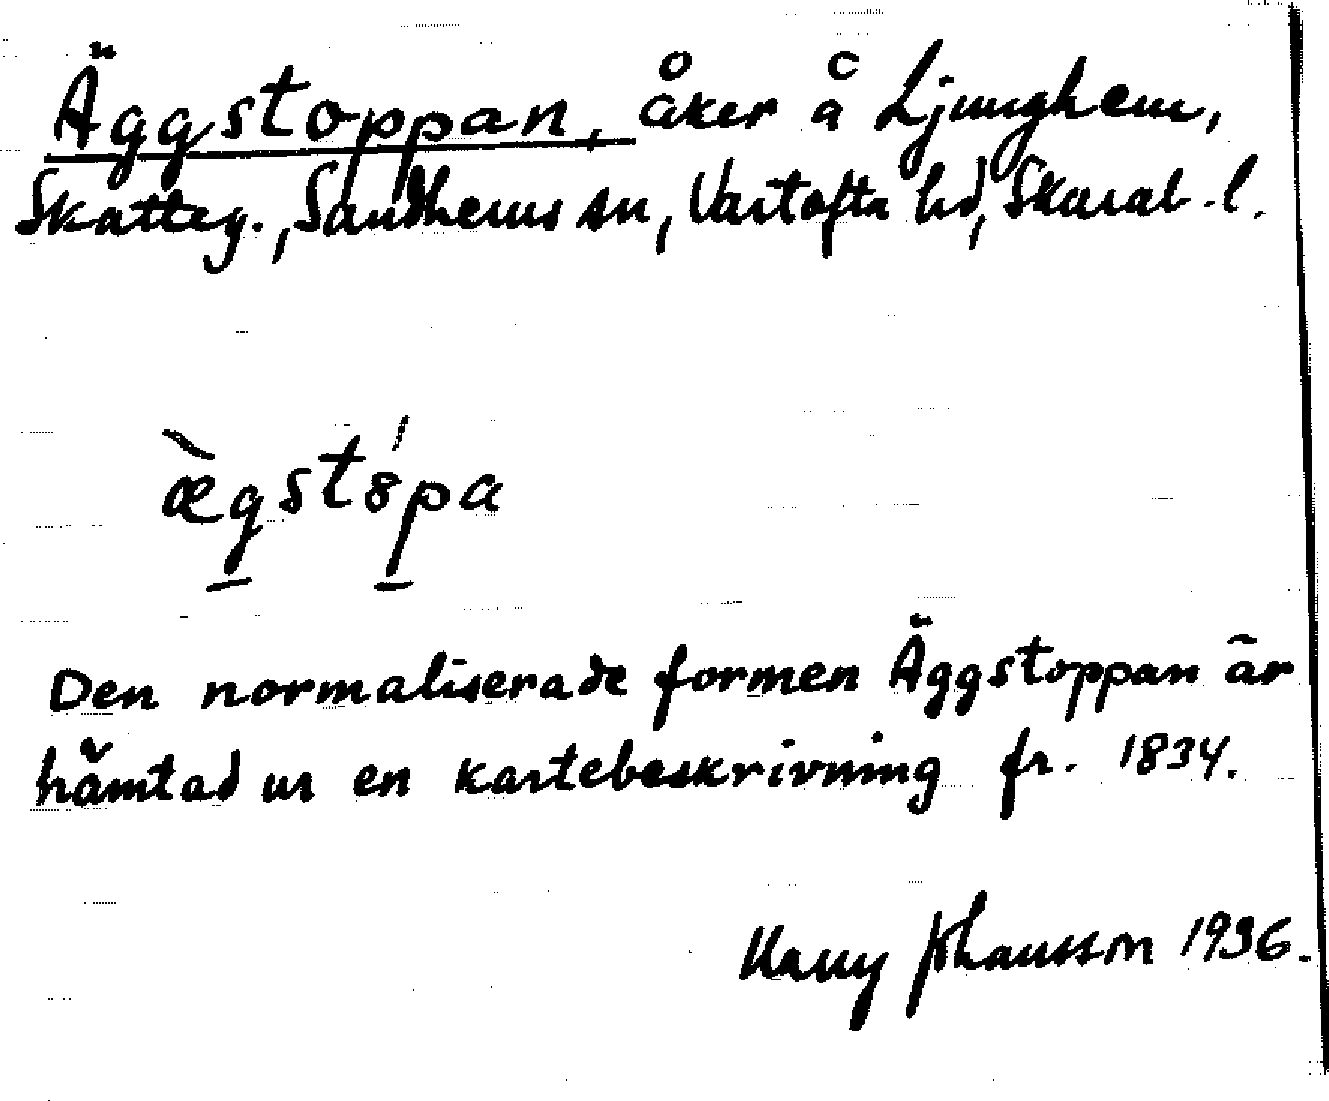 Äggstoppan, åker å Ljunghem,
Skatteg., Sandhems sn, Vartofta hd, Skarab. l.
ægstɞpa
Den normaliserade formen Äggstoppan är
hämtad ur en kartebeskrivning fr. 1834.
Harry Johansson 1936.